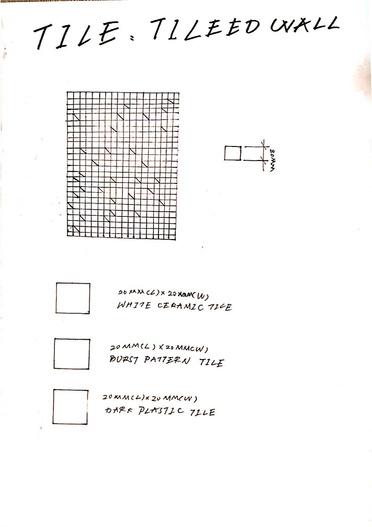 TILE : TILEED WALL
20MM
20MM(L) X 20MM(W)
WHITE CERAMIC TILE
20MM(L) X 20MM(W)
BURST PATTERN TILE
20MM(L) X 20MM(W)
DARK PLASTIC TILE